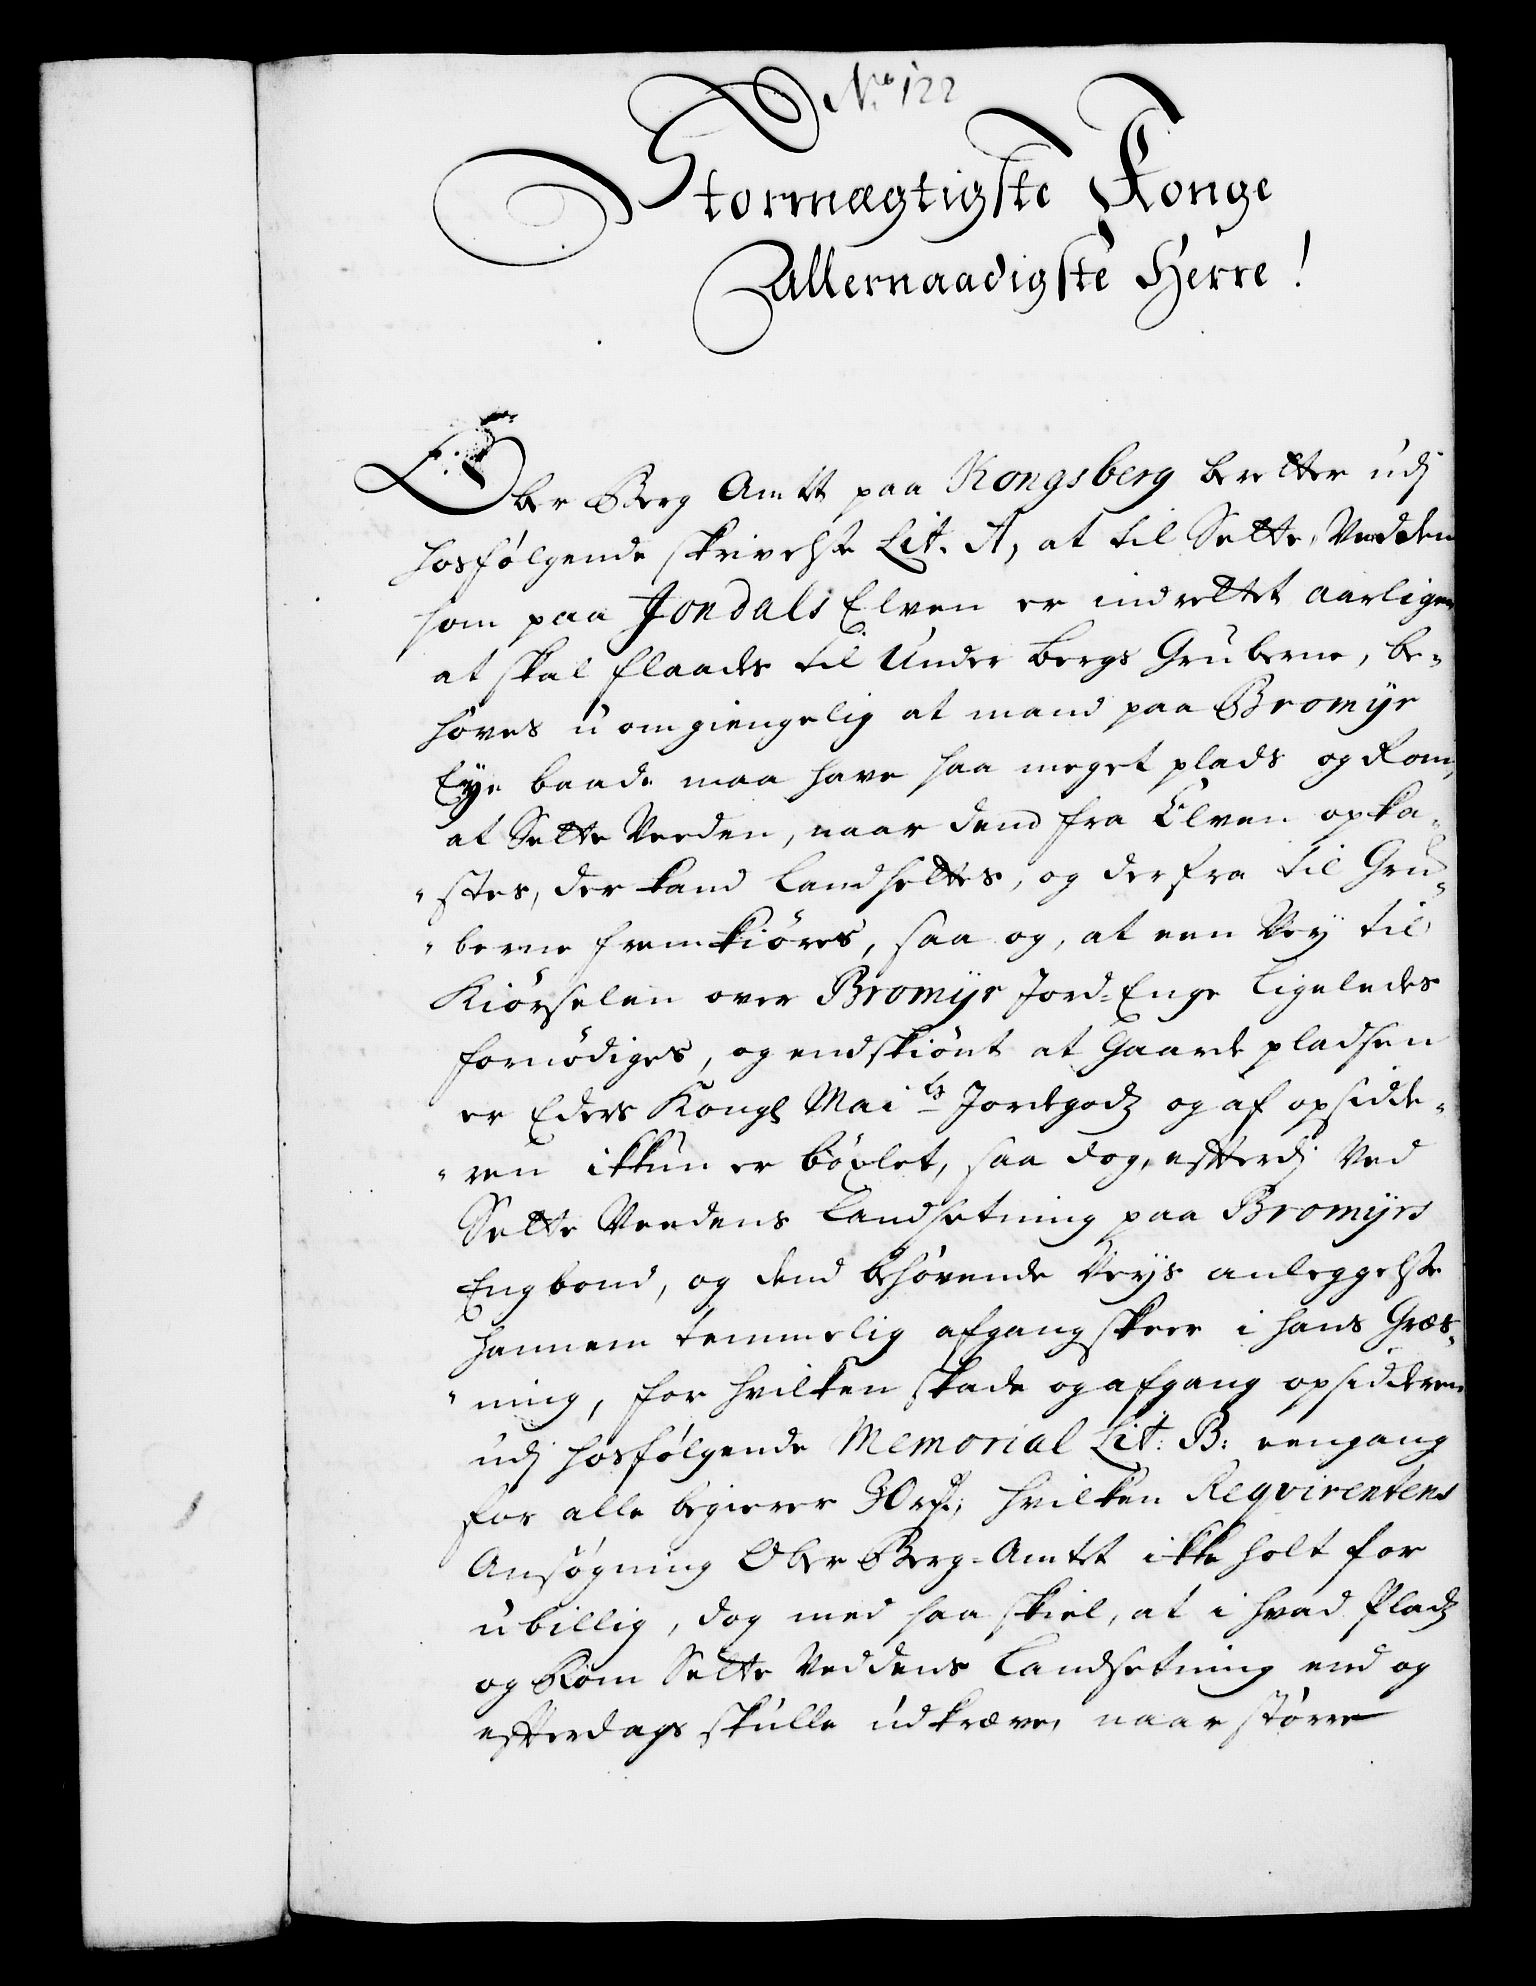 No 122
Stormægtigste Konge
Allernaadigste Herre!
Ober Berg Amtt paa Kongsberg beretter udj
hosfølgende skrivelse Lit. A, at til Sette Vedden
som paa Jondals Elven er indrettet aarligen
at skal flaades til Under bergs Gruberne, be-
høves uomgiengelig at mand paa Bromyr
Eye baade maa have saa meget plads og Rom,
at Sette Veeden, naar dend fra Elven opka-
"stes, der kand landsettes, og derfra til Gru-
"berne fremkiøres, saa og, at een Vey til
Kiørselen over Bromyr Jord-Enge ligeledes
fornødiges, og endskiønt at Gaarde pladsen
er Eders Kongl Maits Jordegodz og af opsidde-
"ren ikkun er bøxlet, saa dog, efterdj Ved
Sette Veedens landsetning paa Bromyrs
Engbond, og dend behøvende Veys anleggelse
hannem temmelig afgang skeer i hans Græs-
"ning, for hvilken skade og afgang opsidderen
udj hosfølgende Memorial Lit: B: eengang
for alle begierer 30 rd; hvilken Reqvirentens
Ansøgning Ober Berg-Amtet ikke holt for
ubillig, dog med saa skiel, at i hvad Pladz
og Rom Sette Veddens Landsetning end og
efterdags skulle udkræve, naar større